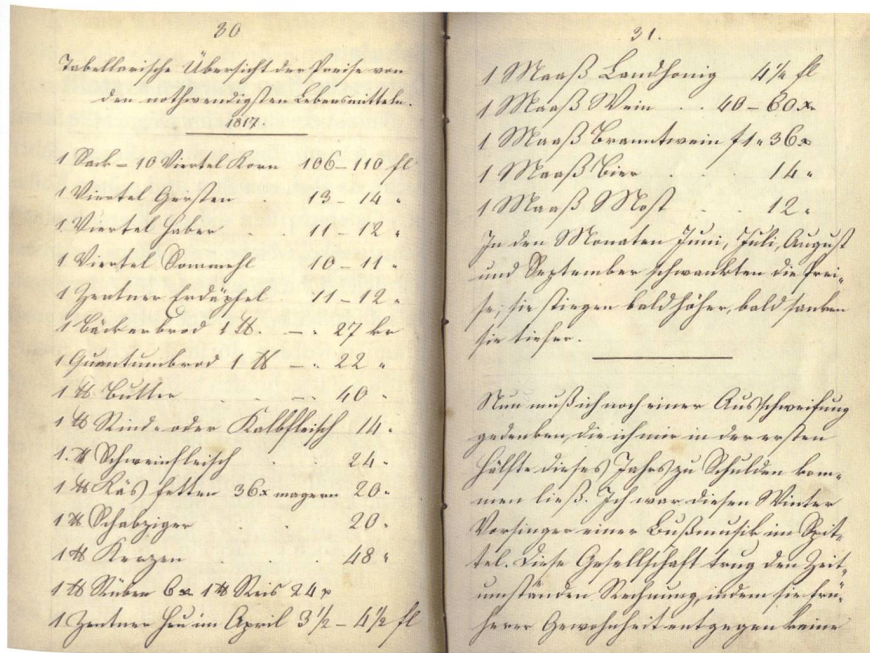 30
Tabellarische Übersicht der Preise von
den nothwendigsten Lebensmitteln.
1817.
1 Sack = 10 Viertel Korn 106–110 fl
1 Viertel Gersten . 13 – 14 "
1 Viertel Haber . . 11 – 12 "
1 Viertel 10 – 11 "
1 Zentner Erdäpfel 11 – 12 "
1 Bäckerbrod 1 ℔. – " 27 kr
1 Quantumbrod 1 ℔ – " 22 "
1 ℔ Butter . . – " 40 "
1 ℔ Rind= oder Kalbfleisch 14 "
1 ℔ Schweinfleisch . . 24 "
1 ℔ Käs fetten 36 x magern 20 "
1 ℔ Schabziger . . 20 "
1 ℔ Kerzen . . . 48 "
1 ℔ Rüben 6 x 1 ℔ Reis 24 x
1 Zentner Heu im April 3½ – 4½ fl
31.
1 Maaß Landhonig 4½ fl
1 Maaß Wein . . 40 – 60 x
1 Maaß Branntwein f 1 " 36 x
1 Maaß Bier . . 14 "
1 Maaß Most . . 12 "
In den Monaten Juni, Juli, August
und September schwankten die Prei=
se; sie stiegen bald höher, bald sanken
sie tiefer.
Nun muß ich noch einer Ausschweifung
gedenken, die ich mir in der ersten
Hälfte dieses Jahrs zu Schulden kom=
men ließ. Ich war diesen Winter
Vorsinger einer Bußmusik im Spit=
tel. Diese Gesellschaft trug den Zeit=
umständen Rechnung, indem sie frü=
herer Gewohnheit entgegen keine